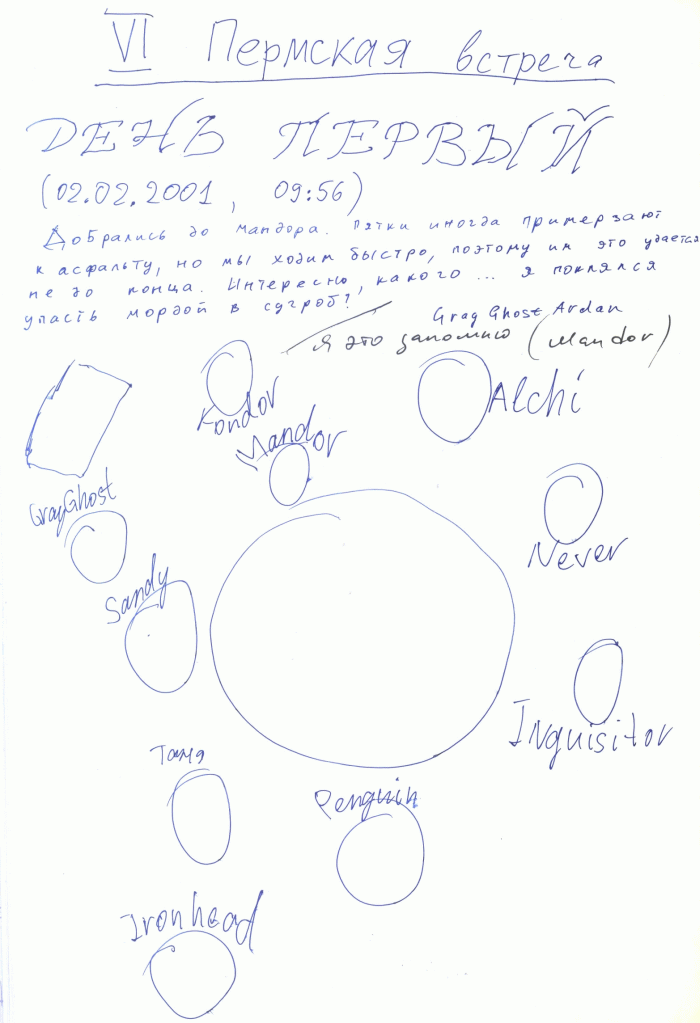 VI Пермская встреча
ДЕНЬ ПЕРВЫЙ
(02.02.2001, 09:56)
Добрались до мандора. Пятки иногда примерзают
к асфальту, но мы ходим быстро, поэтому им это удается
не до конца. Интересно, какого ... я поклялся
упасть мордой в сугроб?
Gray Ghost Ardan
Я это запомню (Mandor)
Kondor
Alchi
Mandor
GrayGhost
Never
Sandy
Inquisitor
Таня
Penguin
Ironhead